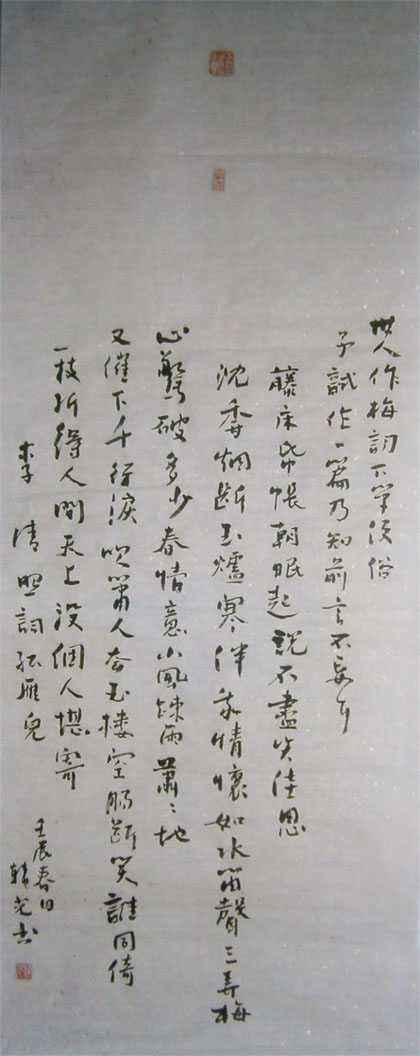 世人作梅詞下筆便俗
予試作一篇乃知前言不妄耳
藤床紙帳朝眠起說不盡無佳思
沈香烟斷玉爐寒伴我情懷如水笛聲三弄梅
心驚破多少春情意小風疎雨蕭々地
又催下千行淚吹簫人去玉樓空腸斷與誰同倚
一枝折得人間天上沒個人堪寄
李清照詞孤雁兒
壬辰春日
光书